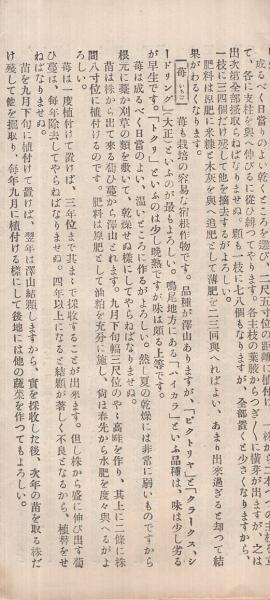 成るべく日當りのよい乾くところを選び、二尺五寸位の距離に植付け、株から一本づつの主枝を立
て、各に支柱を與へ伸びるに從ひ縛つてやります。各主枝の葉腋からつぎ〳〵に橫芽が出ますが、之は
出次第全部搔取らねばなりませぬ。顆も一枝に七八個もなりますが、全部置くと少さくなりますから、
一枝に三四個だけ殘して他を摘去るがよろしい。
肥料は原肥に米糠と木灰を與へ追肥として薄肥を二三回與へればよい、あまり出來過ぎると却つて結
果がわるくなります。
【苺 いちご】 苺も栽培の容易な宿根植物です。品種が澤山ありますが、「ビクトリヤ」と「クラークス、シ
ードリング」「大正」といふのが最もよろしい。鳴尾地方にある「ハイカラ」といふ品種は、味は少し劣る
が早生です。「トクリ」といふのは少し晩熟ですが味は頗る上等です。
苺は成るべく日當のよい、溫いところに作るがよろしい。然し夏の乾燥には非常に弱いものですから
根元に藁か刈草の類を敷いて、乾燥せぬ樣にしてやらねばなりませぬ。
苗は株から出て來る匐ひ蔓から澤山とれます。九月下旬幅三尺位のやゝ高畦を作り、其上に二條に株
間八寸位に植付けるのです。肥料は原肥として油粕を充分に施し、尙ほ春先から水肥を度々與へるがよ
ろしい。
苺は一度植付けて置けば、三年位まで其まゝで採收することが出來ます。但し株から盛に伸び出す匐
ひ蔓は、每年除去してやらねばなりませぬ。四年以上になると結顆が著しく不良となるから、植替をせ
ねばなりませぬ。
苗を九月下旬に植付けて置けば、翌年は澤山結顆しますから、實を採收した後、次年の苗を取る株だ
け殘して他を掘取り、每年九月に植付ける樣にして後地には他の蔬菜を作つてもよろしい。